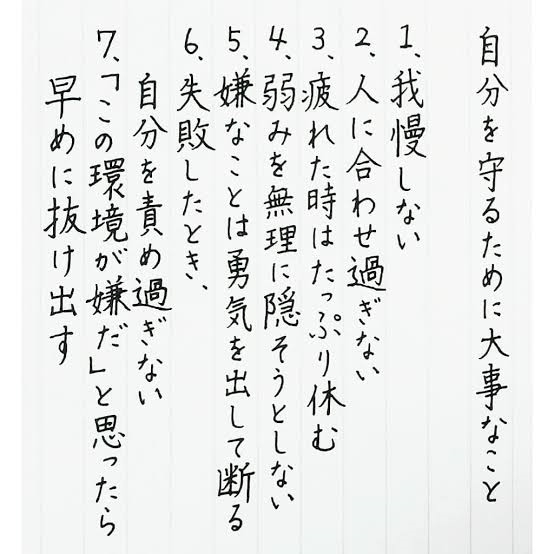 自分を守るために大事なこと
1、我慢しない
2、人に合わせ過ぎない
3、疲れた時はたっぷり休む
4、弱みを無理に隠そうとしない
5、嫌なことは勇気を出して断る
6、失敗したとき、
自分を責め過ぎない
7、「この環境が嫌だ」と思ったら
早めに抜け出す